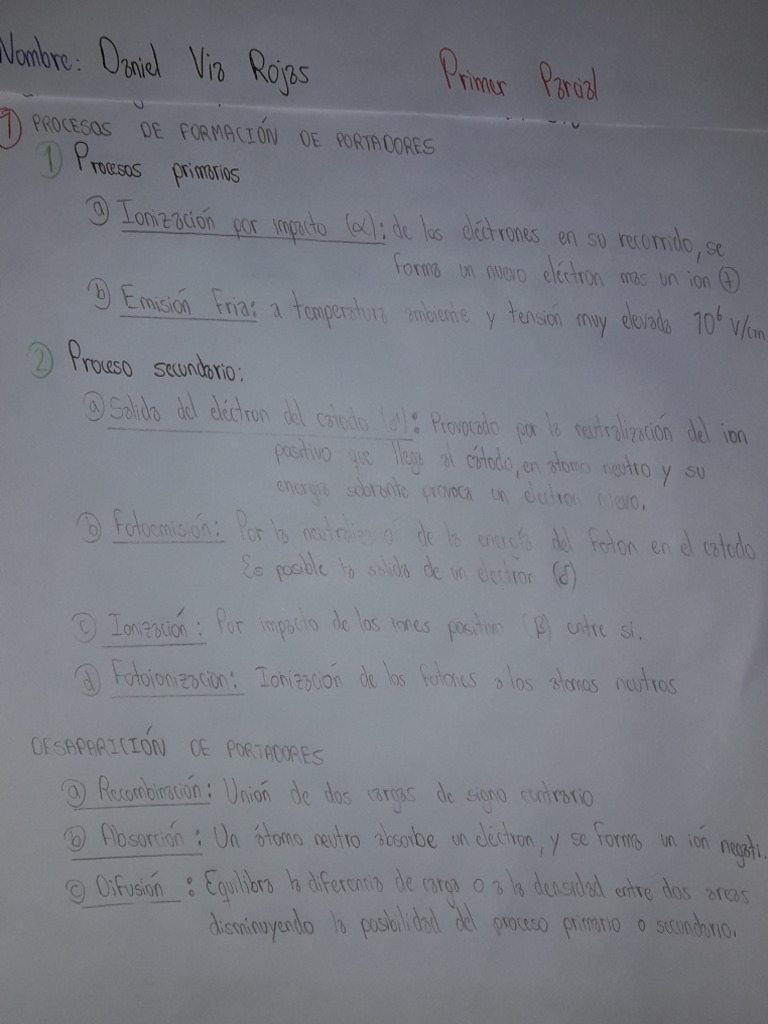 Nombre: Daniel Via Rojas Primer Parcial
1 PROCESOS DE FORMACIÓN DE PORTADORES
1 Procesos primarios
a Ionización por impacto (α): de los eléctrones en su recorrido, se
forma un nuevo eléctron mas un ion +
b Emisión Fria: a temperatura ambiente y tensión muy elevada 10⁶ V/cm
2 Proceso secundario:
a Salida del eléctron del catodo (γ): Provocado por la neutralización del ion
positivo que llega al cátodo, en atomo neutro y su
energia sobrante provoca un electron nuevo.
b Fotoemisión: Por la neutralización de la energía del foton en el catodo
Es posible la salida de un electron (δ)
c Ionización: Por impacto de los iones positivo (β) entre sí.
d Fotoionización: Ionización de los fotones a los atomos neutros
DESAPARICIÓN DE PORTADORES
a Recombinación: Unión de dos cargas de signo contrario
b Absorción: Un átomo neutro absorbe un eléctron, y se forma un ión negati.
c Difusión: Equilibra la diferencia de carga o a la densidad entre dos areas
disminuyendo la posibilidad del proceso primario o secundario.